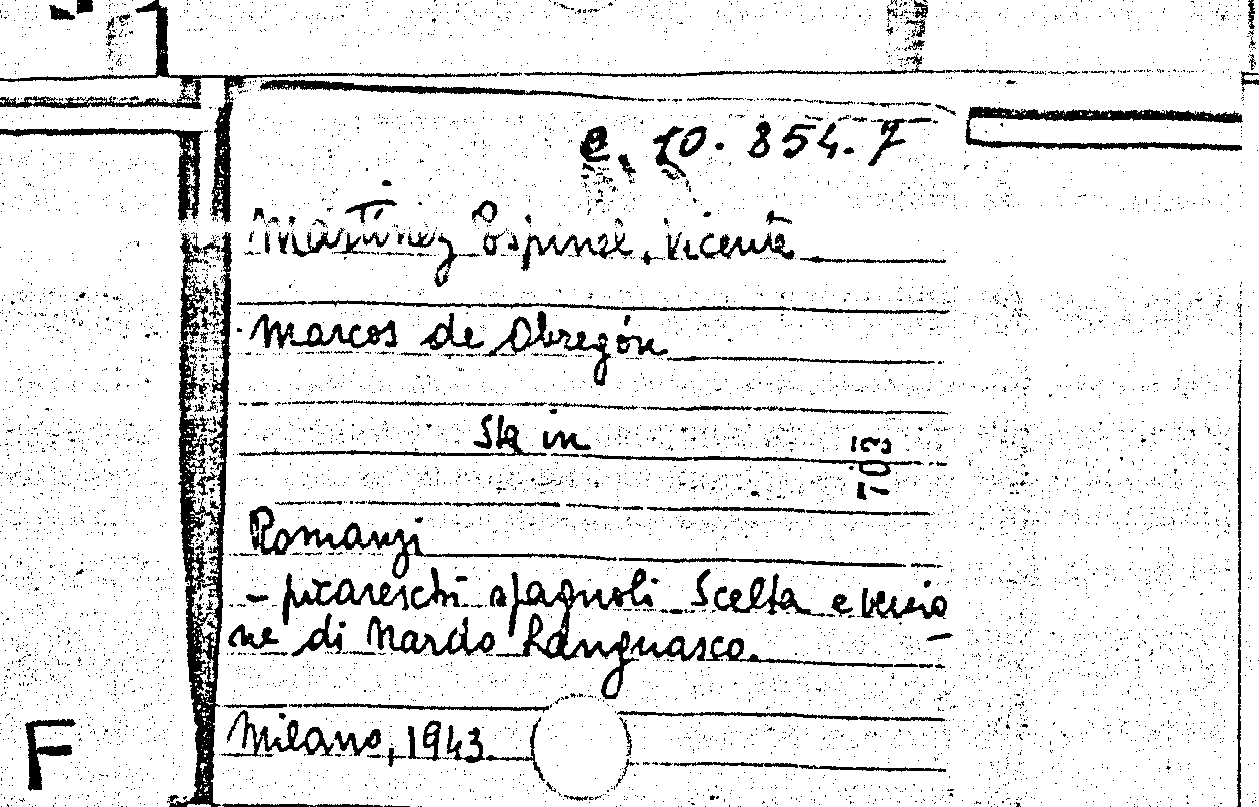 C. 10. 854. 7
Martínez Espinel, Vicente
Marcos de Obregón
Sta in
703
Romanzi
- picareschi spagnoli. Scelta e versio
ne di Nardo Languasco.
Milano, 1943.
F